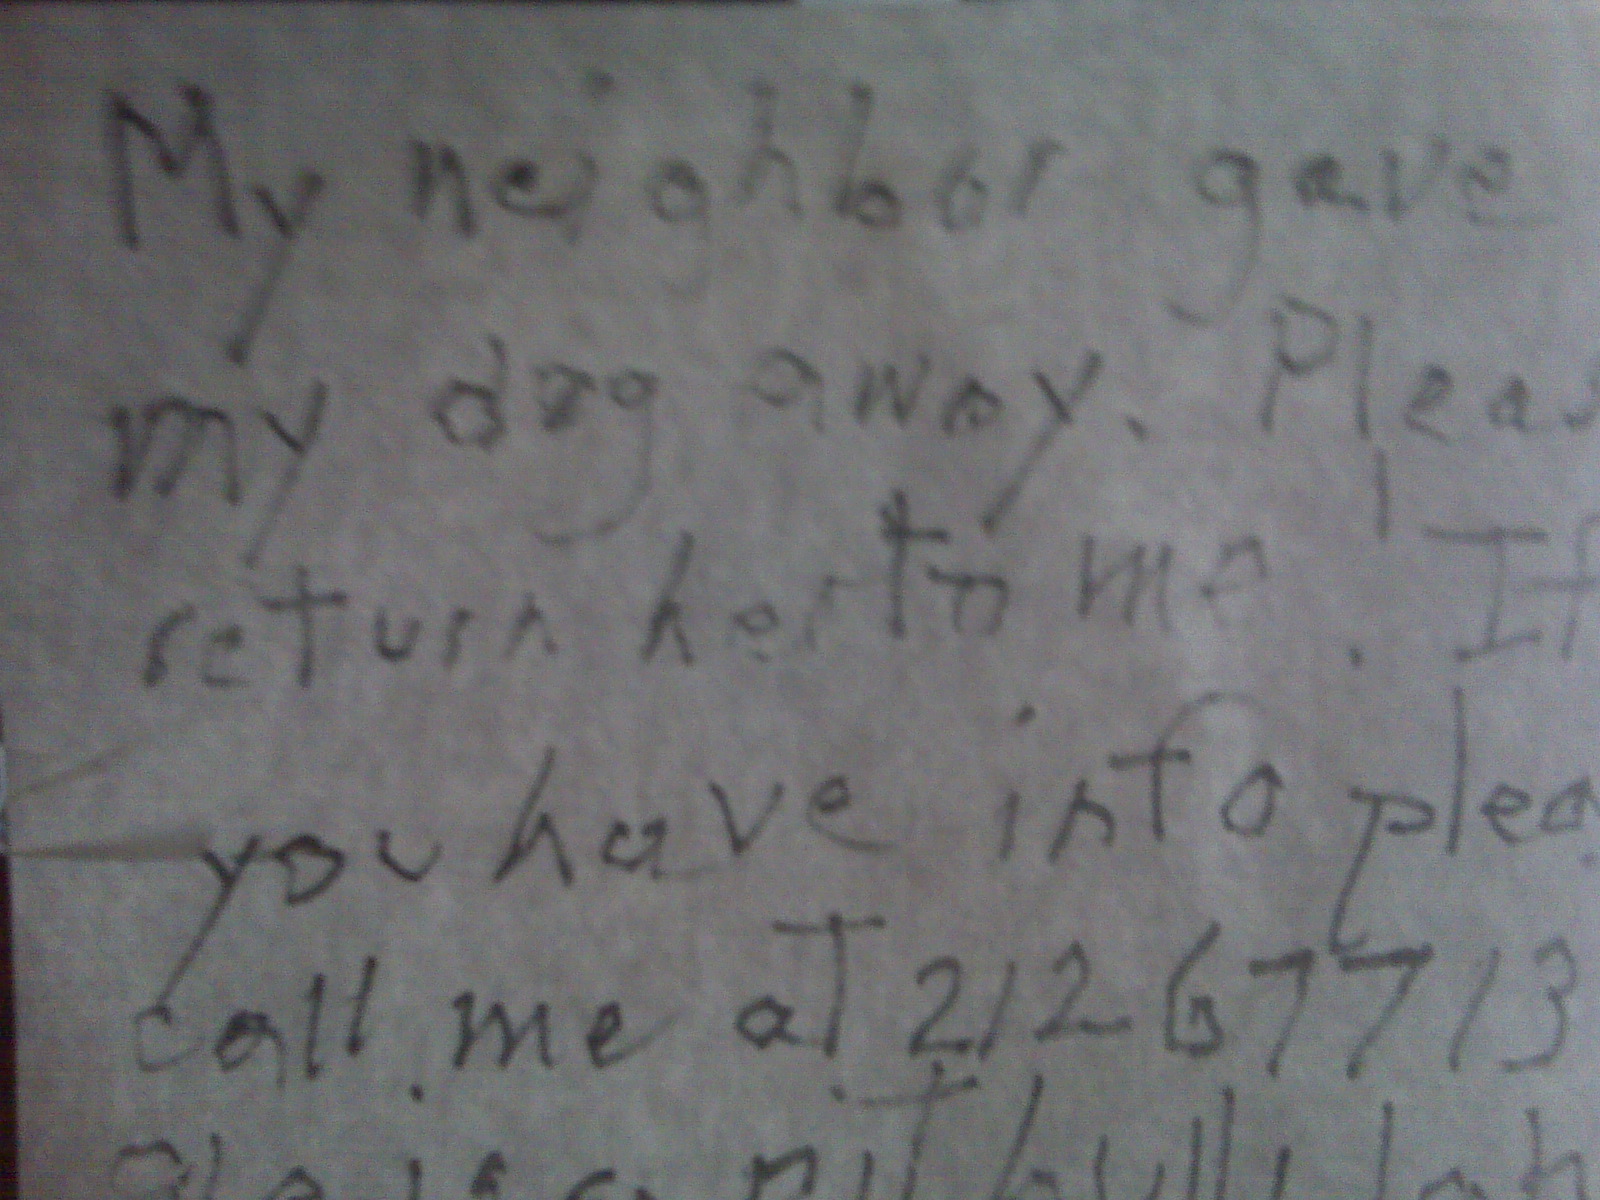 My neighbor gave
my dog away. Pleas
return her to me. If
you have info plea
call me at 212 677 13
She is a pit bull lab